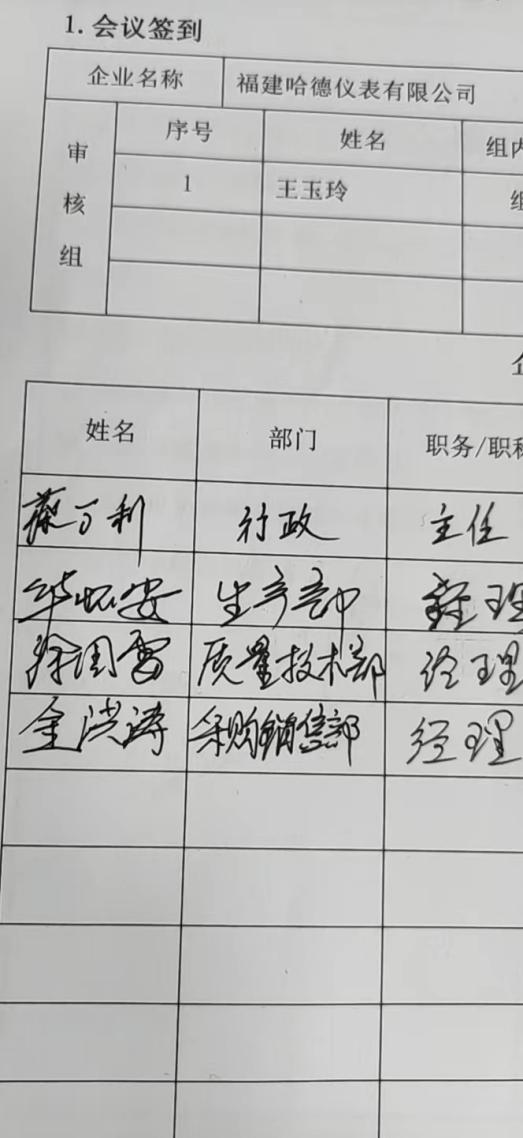 1. 会议签到
企业名称 福建哈德仪表有限公司
审核组
序号 姓名 组内
1 王玉玲 组
姓名 部门 职务/职称
万利 行政 主任
华怀安 生产部 经理
徐国雷 质量技术部 经理
金洪涛 采购销售部 经理